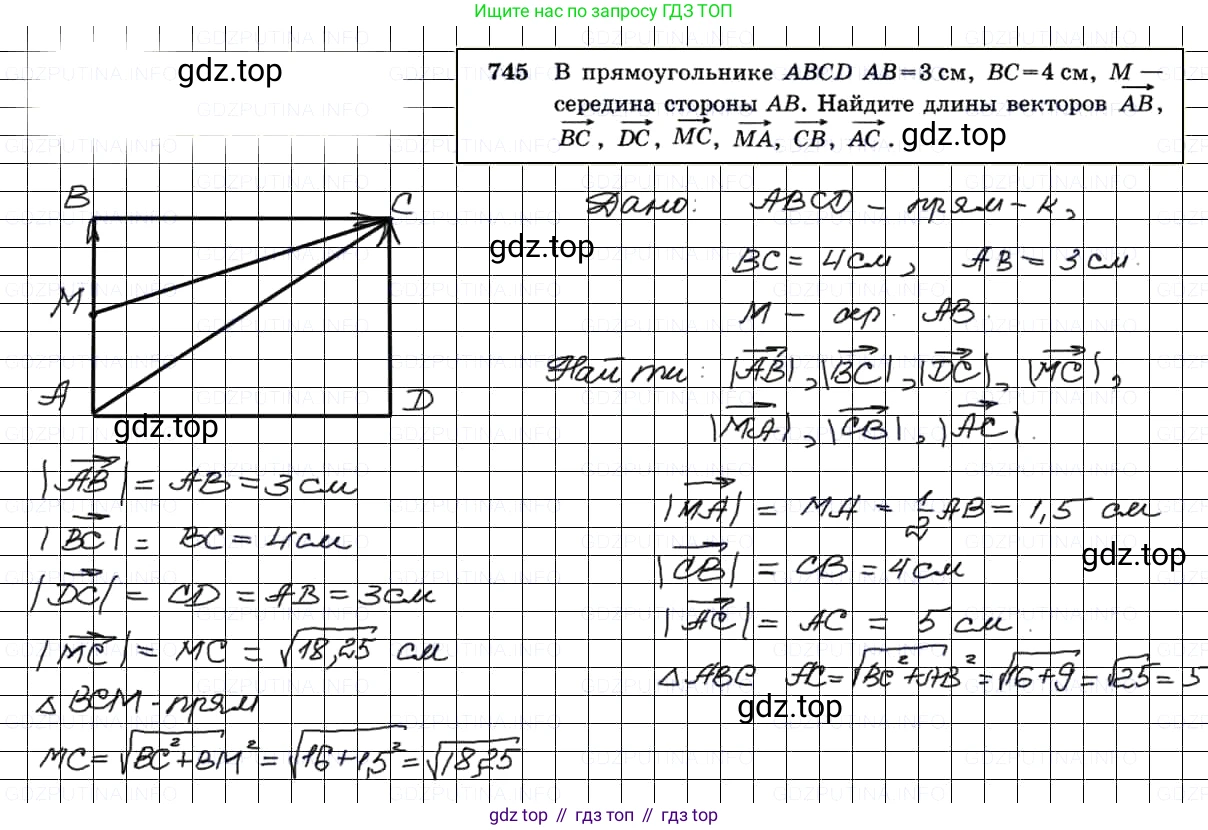 Ищите нас по запросу ГДЗ ТОП
gdz.top
745 В прямоугольнике ABCD AB=3 см, BC=4 см, M —
середина стороны AB. Найдите длины векторов AB,
BC, DC, MC, MA, CB, AC.
gdz.top
B
C
M
A
D
gdz.top
gdz.top
Дано: ABCD – прям-к,
BC = 4 см, AB = 3 см.
M – сер. AB.
Найти: |AB|, |BC|, |DC|, |MC|,
|MA|, |CB|, |AC|.
|AB| = AB = 3 см
|BC| = BC = 4 см
|DC| = CD = AB = 3 см
|MC| = MC = √18,25 см
△ BCM - прям
MC = √BC²+BM² = √16+1,5² = √18,25
|MA| = MA = 1/2 AB = 1,5 см
gdz.top
|CB| = CB = 4 см
|AC| = AC = 5 см.
△ ABC AC = √BC²+AB² = √16+9 = √25 = 5
gdz.top
gdz top // гдз топ // gdz top
GDZPUTINA.INFO